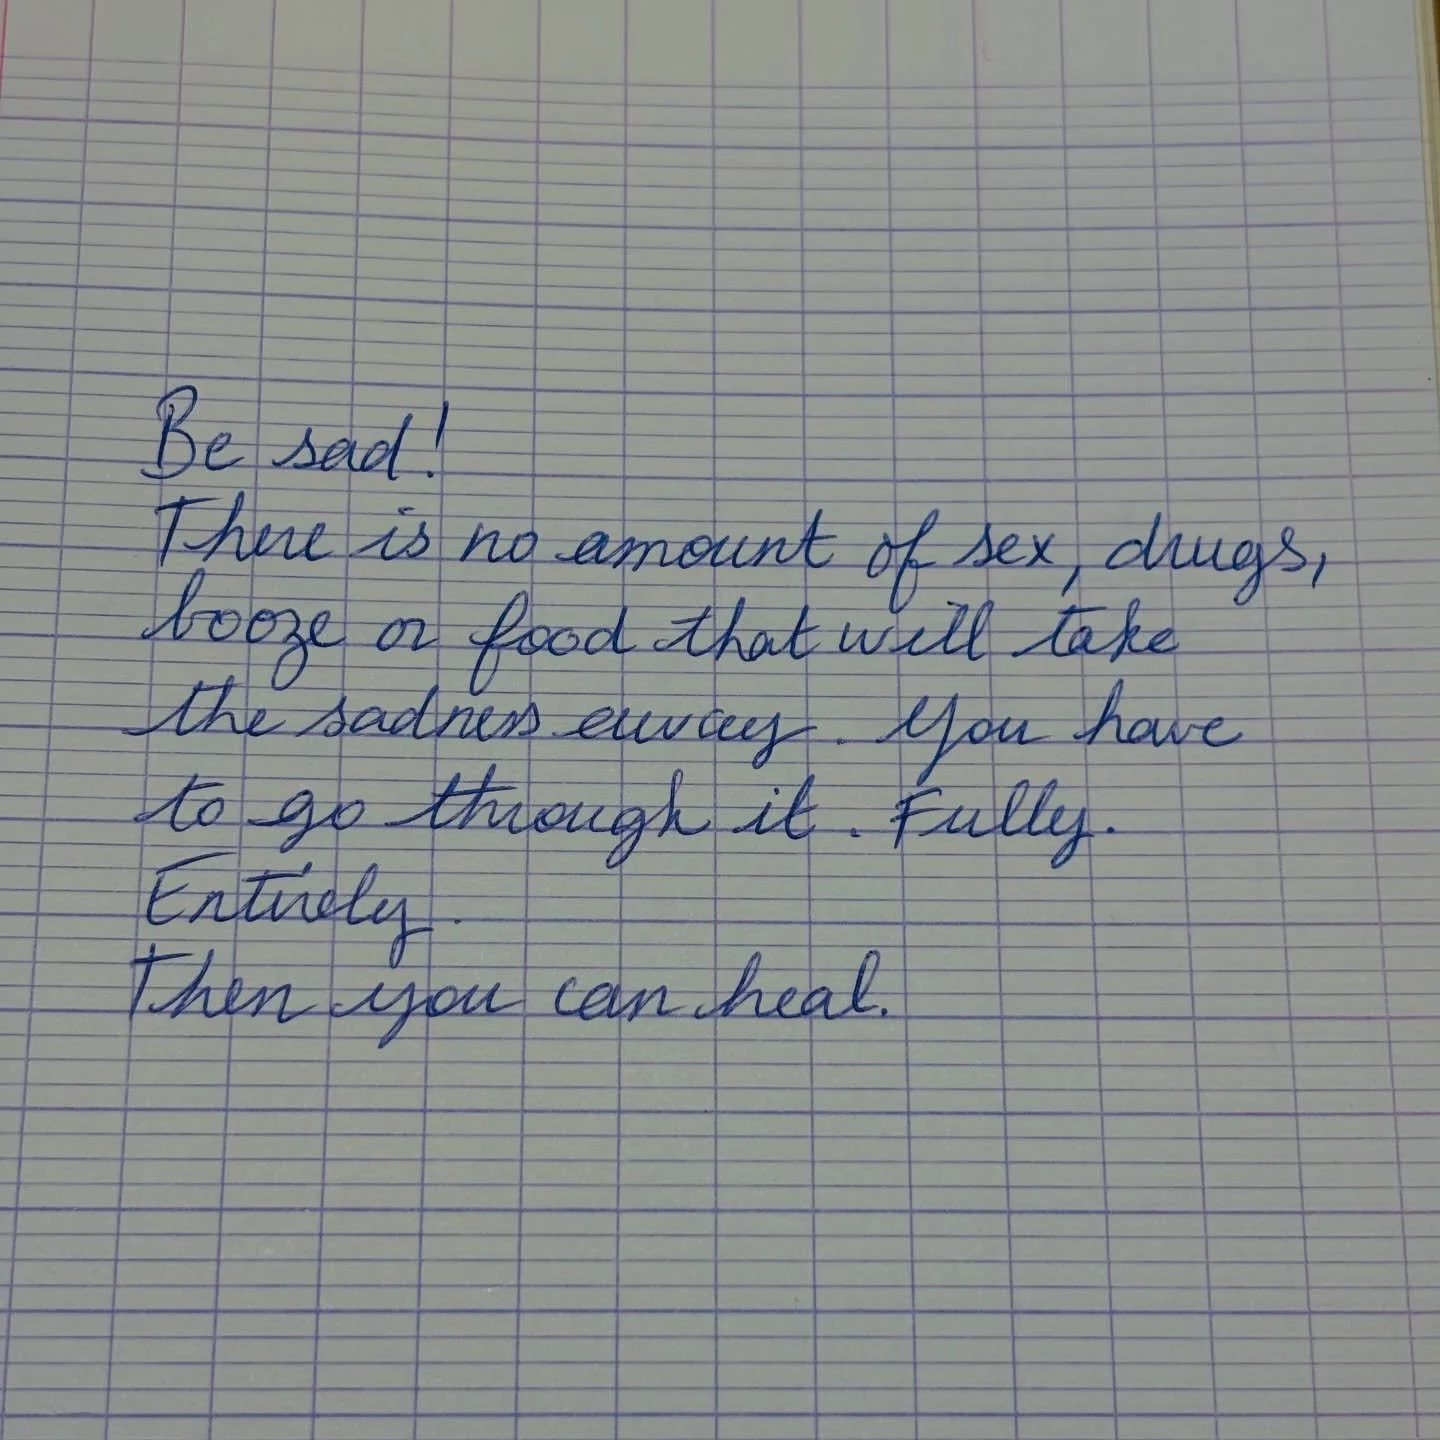 Be sad!
There is no amount of sex, drugs,
booze or food that will take
the sadness away. You have
to go through it. Fully.
Entirely.
Then you can heal.